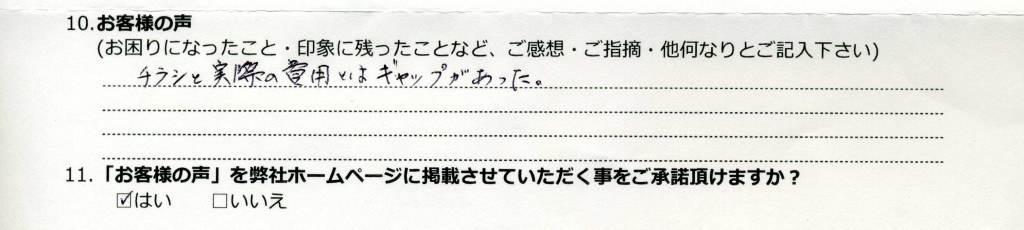 10.お客様の声
(お困りになったこと・印象に残ったことなど、ご感想・ご指摘・他何なりとご記入下さい)
チラシと実際の費用とはギャップがあった。
11.「お客様の声」を弊社ホームページに掲載させていただく事をご承諾頂けますか？
☑はい □いいえ